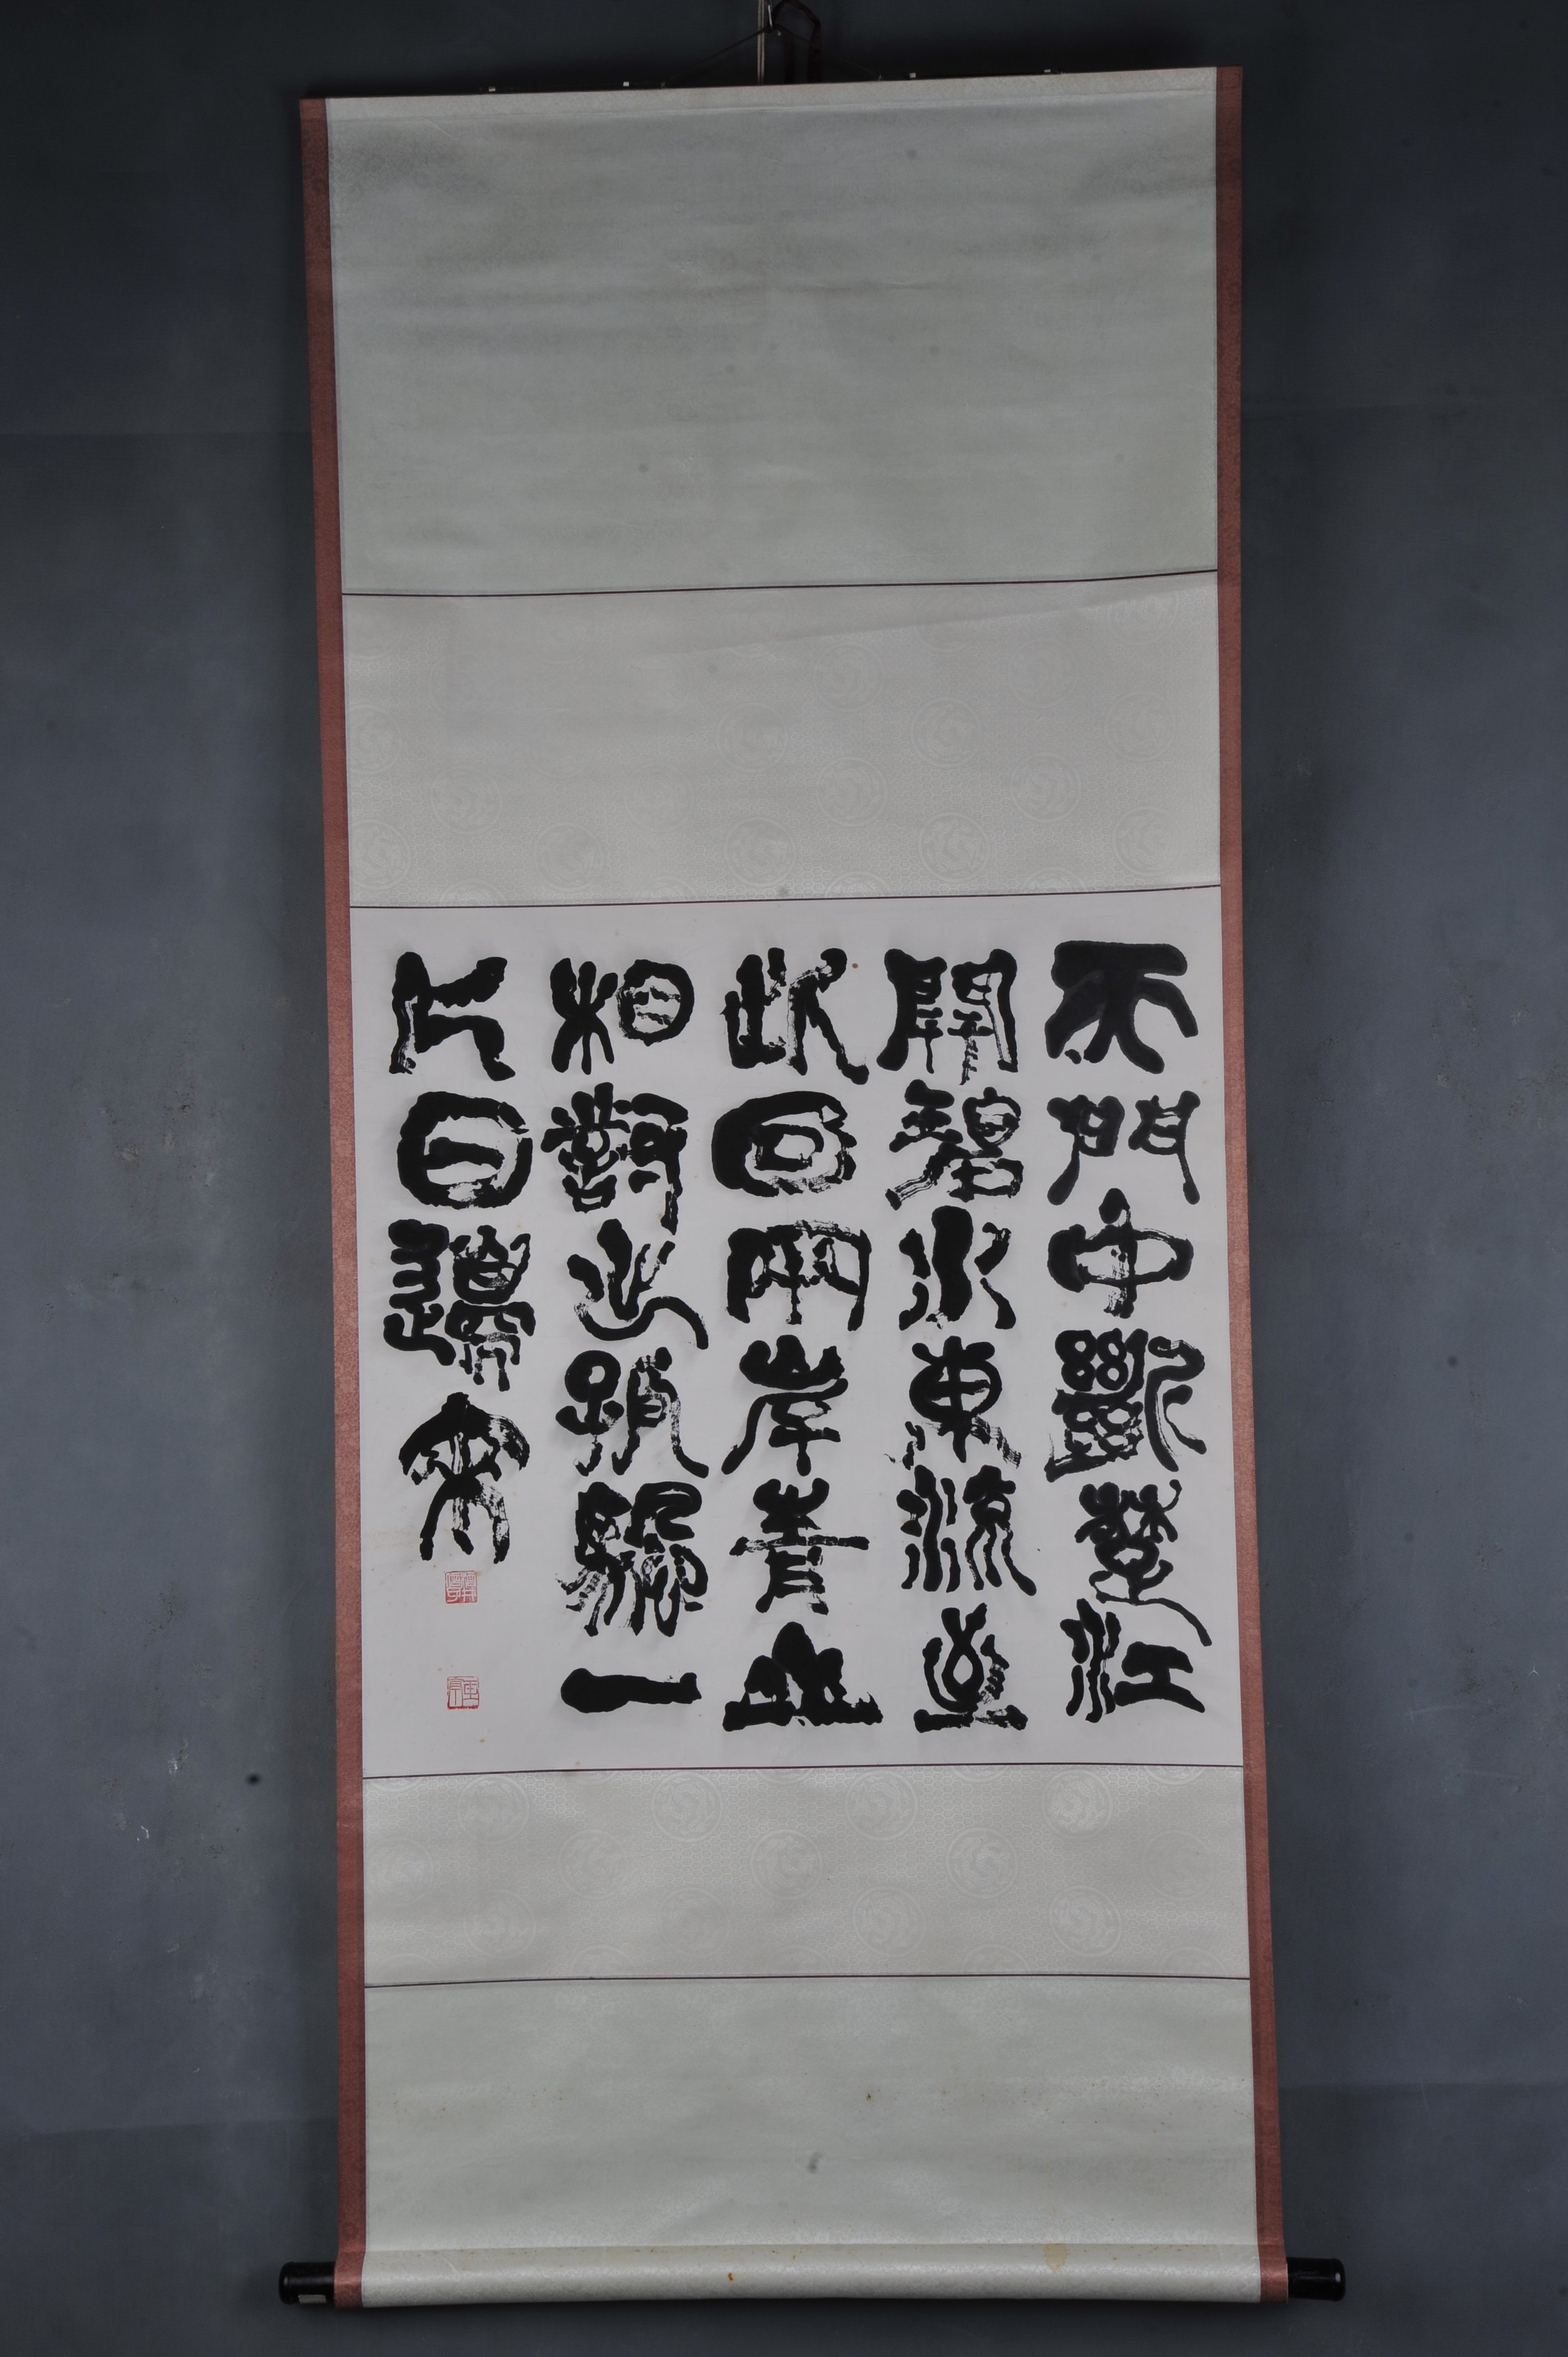 天門中斷楚江
開碧水東流至
此回兩岸青山
相對出孤颿一
片日邊來